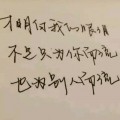 才明白我们的眼泪
不是只为你而流
也为别人而流